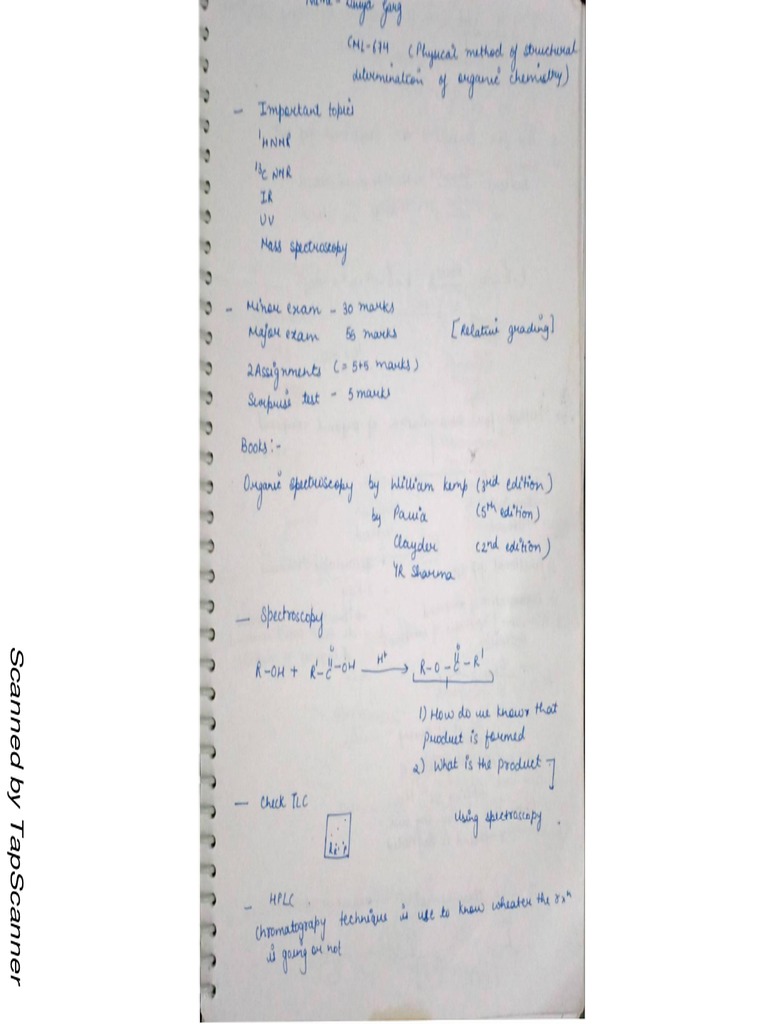 Garg
CML-674 (Physical method of structural
determination of organic chemistry)
— Important topics
¹HNMR
¹³C NMR
IR
UV
Mass spectroscopy
- Minor exam - 30 marks
Major exam 55 marks [Relative grading]
2 Assignments (= 5+5 marks)
Surprise test - 5 marks
Books:-
Organic spectroscopy by William Kemp (3rd edition)
by Pavia (5th edition)
Clayder (2nd edition)
YR Sharma
— Spectroscopy
R-OH + R'-C(=O)-OH —H⁺→ R-O-C(=O)-R'
1) How do we know that
product is formed
2) What is the product
— Check TLC
using spectroscopy.
- HPLC
Chromatograpy technique is use to know wheater the rxⁿ
is going or not
Scanned by TapScanner